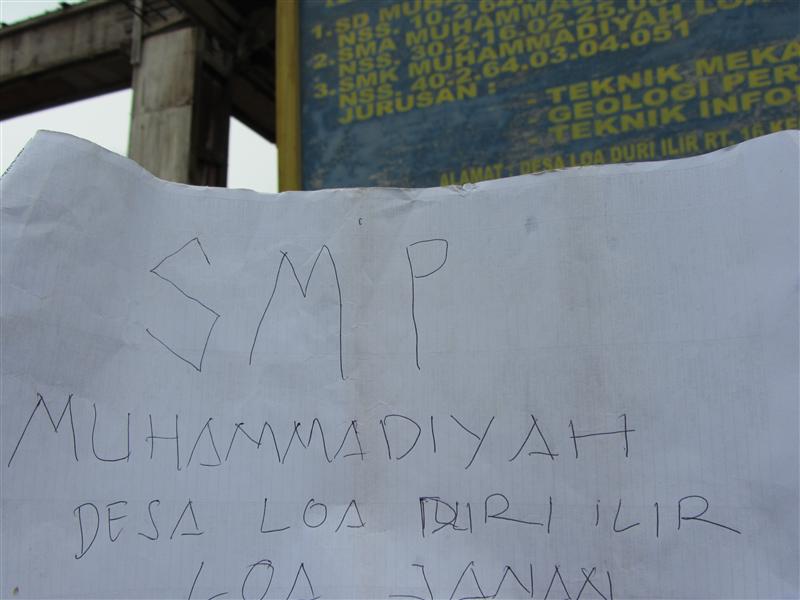 1. SD MUHAM
NSS. 10.2.64
2. SMA MUHAMMADIYAH LOA
NSS. 30.2.16.02-25.00
3. SMK MUHAMMADIYAH
NSS. 40.2.64.03.04.051
JURUSAN : - TEKNIK MEKA
- GEOLOGI PER
- TEKNIK INFOR
ALAMAT : DESA LOA DURI ILIR RT. 16 KE
SMP
MUHAMMADIYAH
DESA LOA DURI ILIR
LOA JANAN